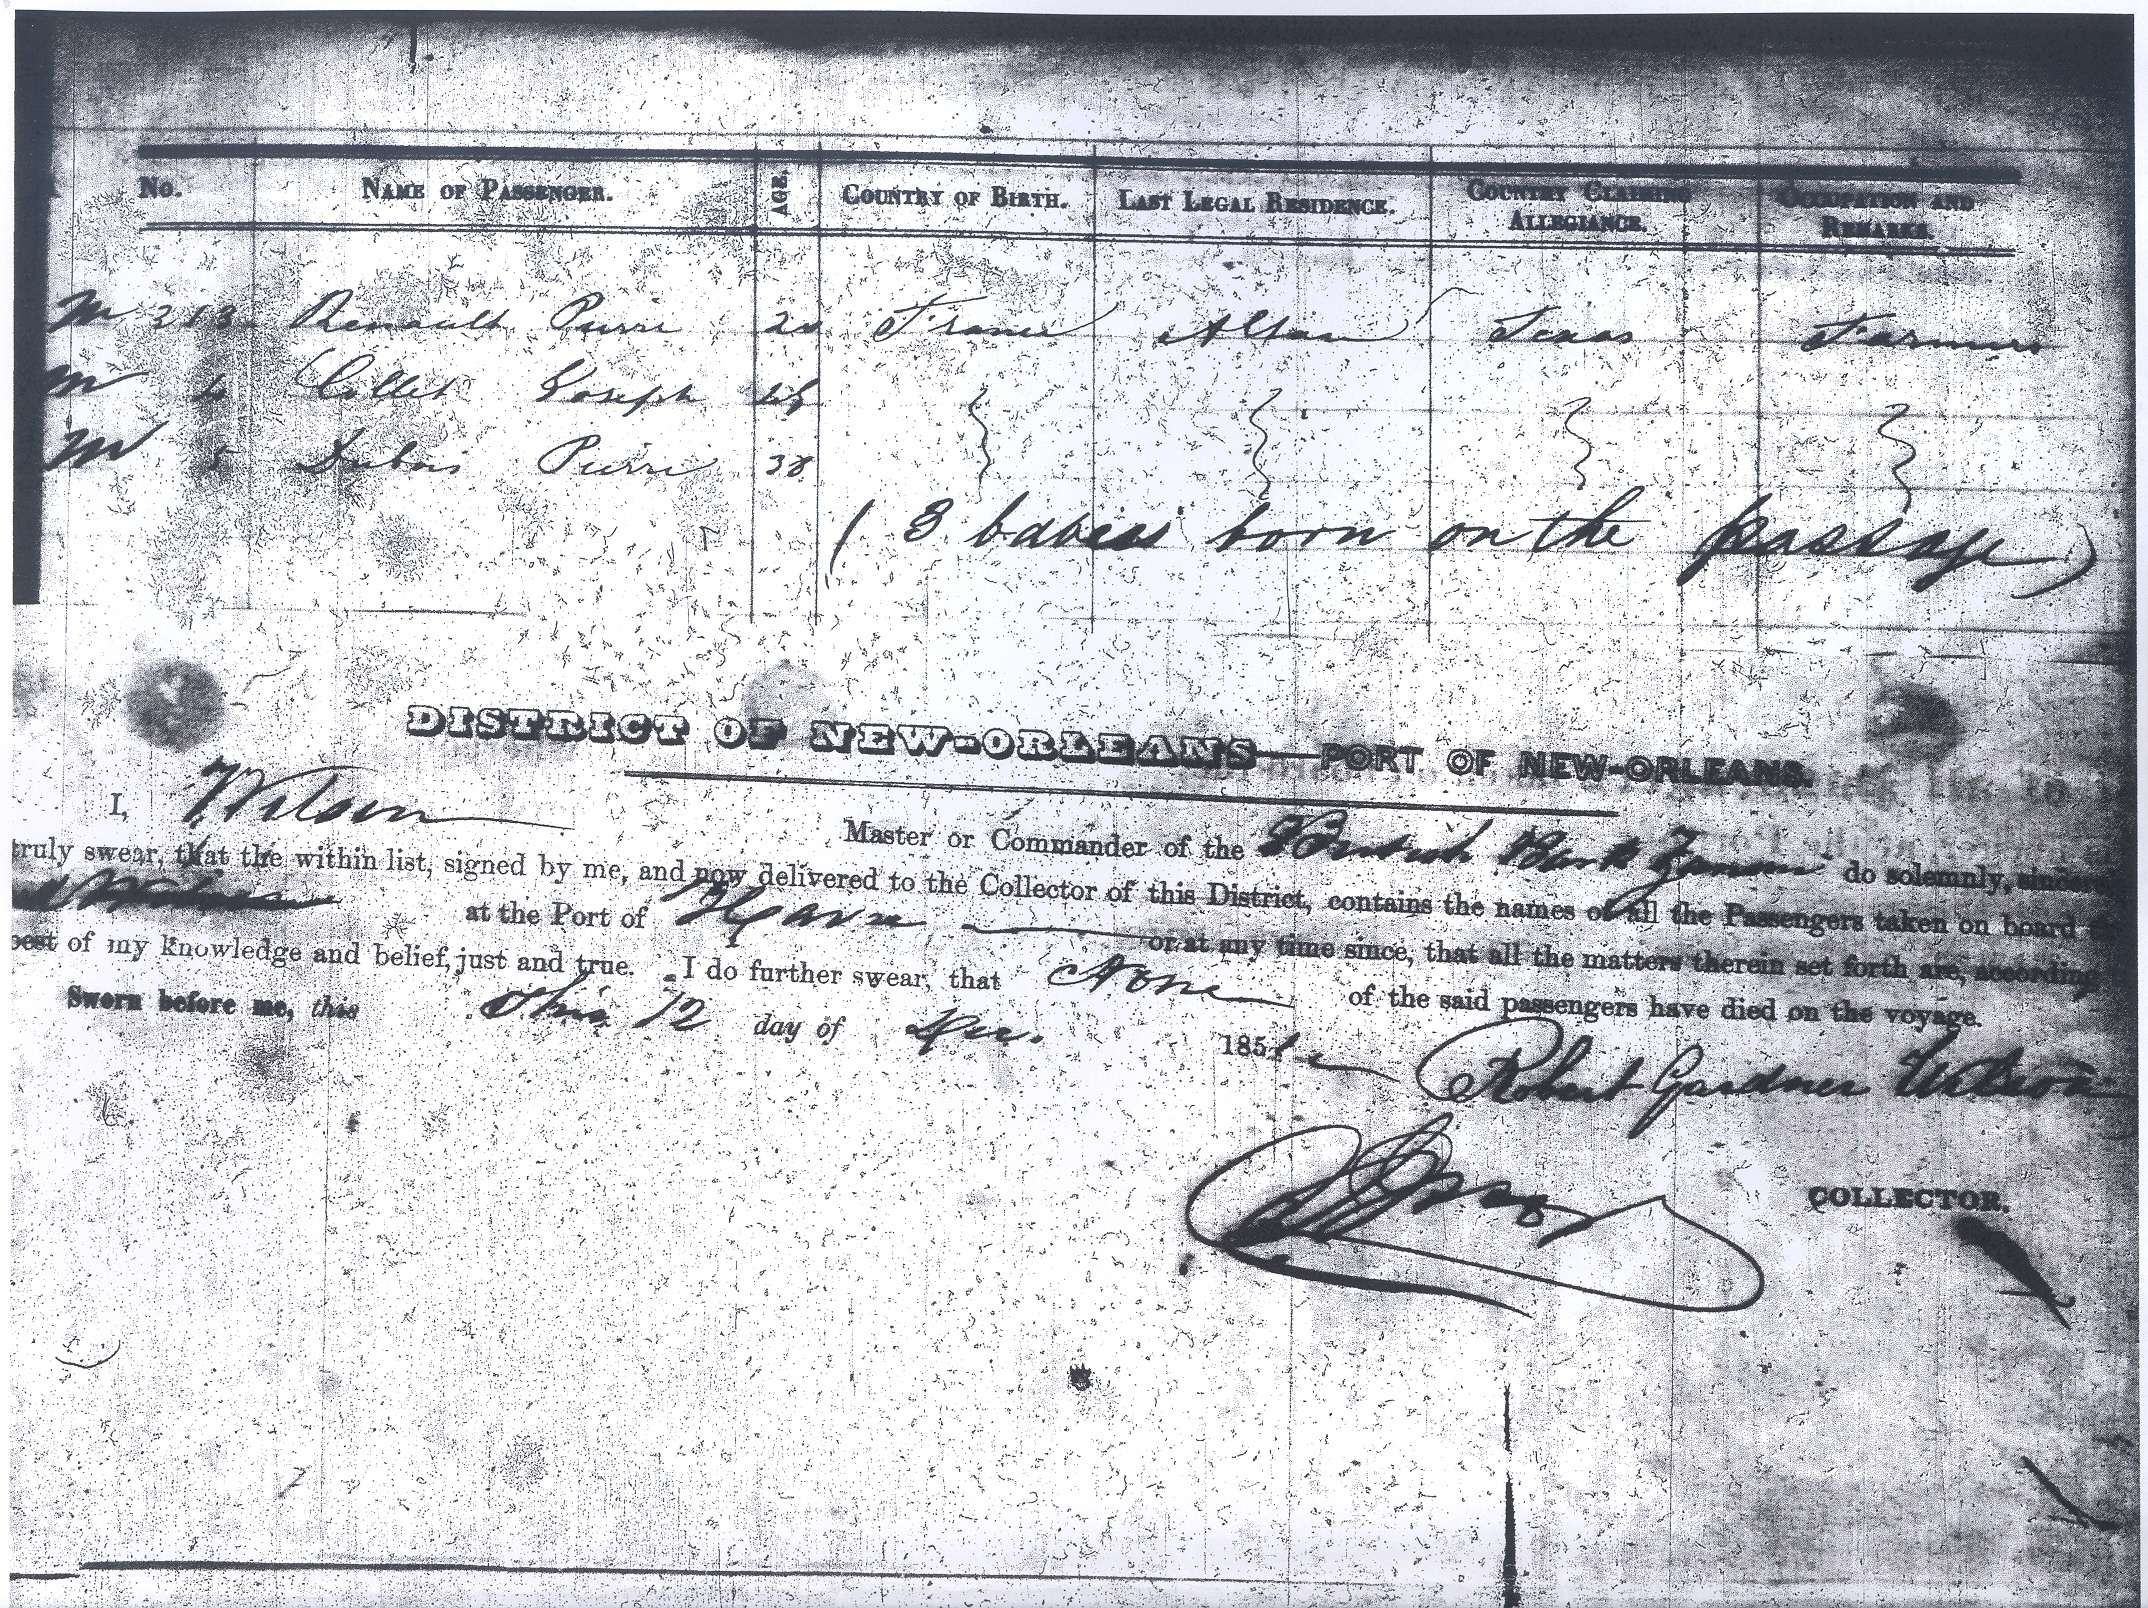 No. NAME OF PASSENGER. AGE. COUNTRY OF BIRTH. LAST LEGAL RESIDENCE. COUNTRY CLAIMING ALLEGIANCE. OCCUPATION AND REMARKS.
M 313 Renault Pierre France Texas Farmer
M 4 Collet Joseph
M 5 Dubois Pierre 38
( 3 babies born on the passage )
DISTRICT OF NEW-ORLEANS—PORT OF NEW-ORLEANS.
I, Wilson Master or Commander of the British Bark do solemnly, sincere
truly swear, that the within list, signed by me, and now delivered to the Collector of this District, contains the names of all the Passengers taken on board
at the Port of Havre or at any time since, that all the matters therein set forth are, according
best of my knowledge and belief, just and true. I do further swear, that None of the said passengers have died on the voyage.
Sworn before me, this this 12 day of Dec. 185
Robert Gardner Wilson
COLLECTOR.